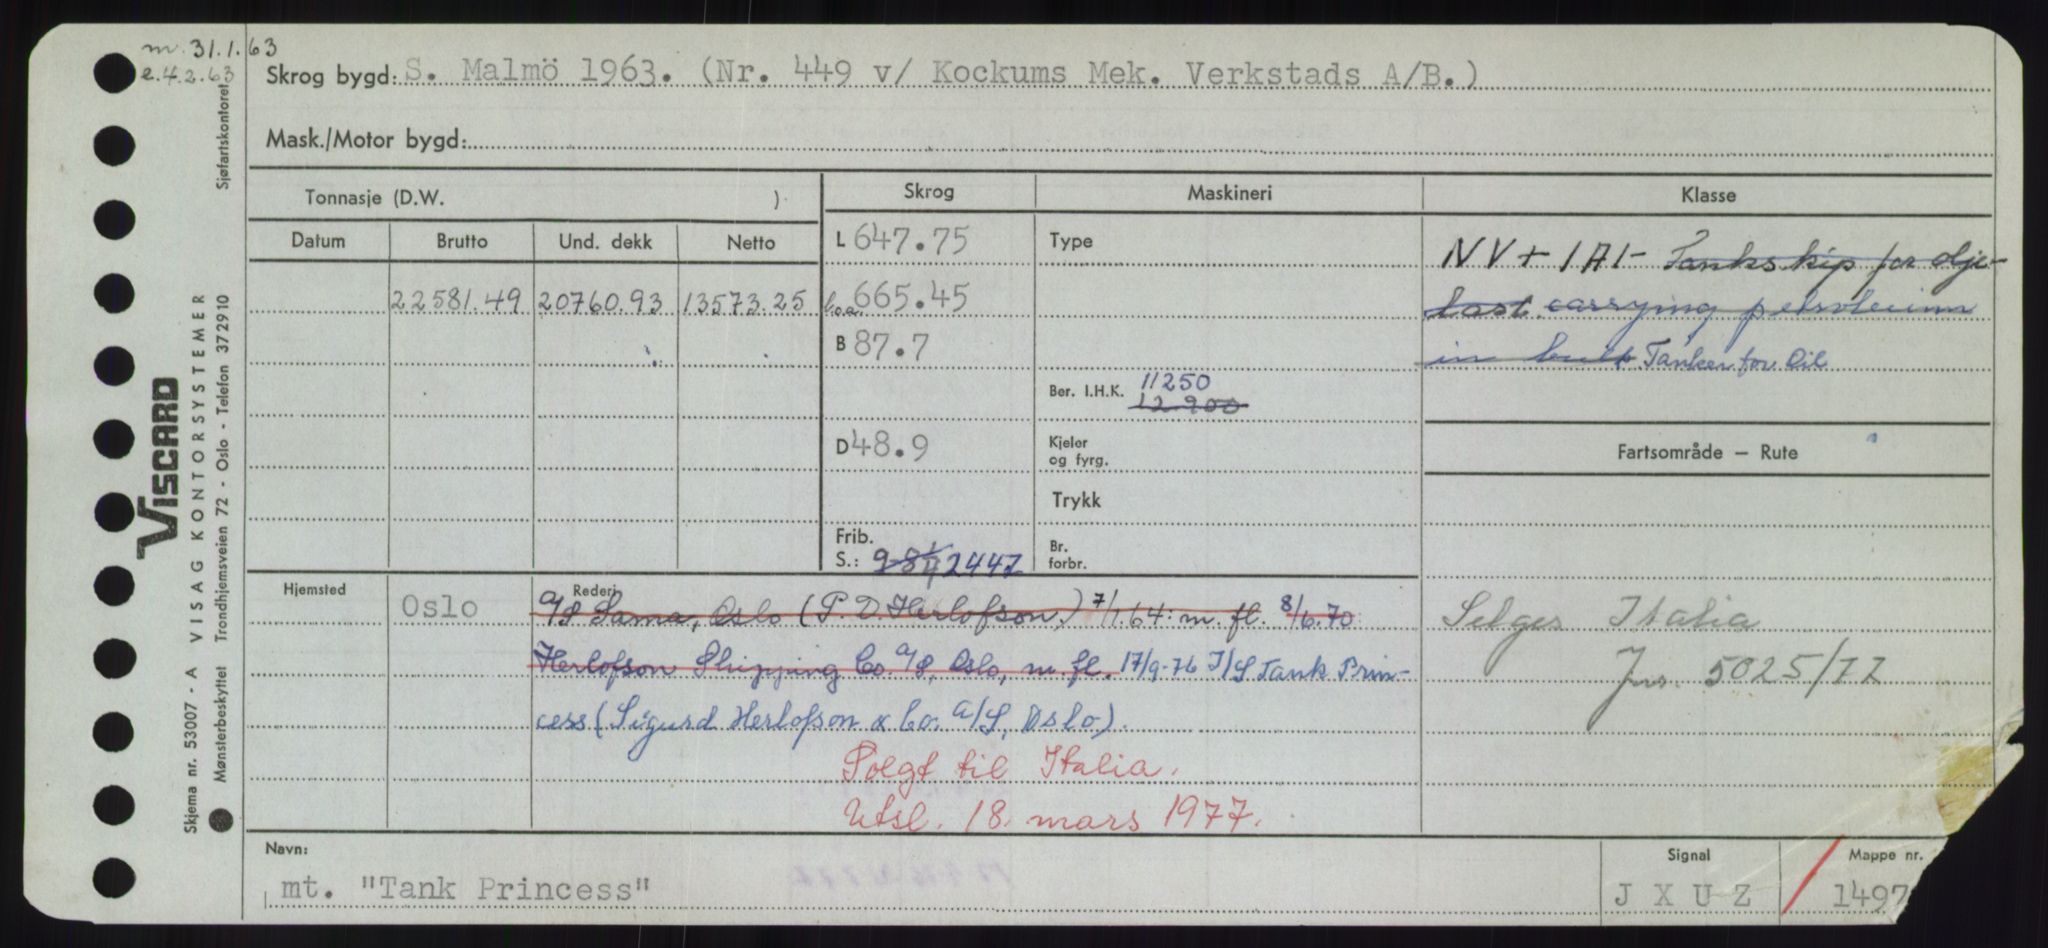 m. 31.1.63
e. 4.2.63
Skrog bygd: S. Malmö 1963. (Nr. 449 v/ Kockums Mek. Verkstads A/B.)
Mask./Motor bygd:
Tonnasje (D.W. )
Skrog
Maskineri
Klasse
Datum Brutto Und. dekk Netto
22581.49 20760.93 13573.25
L 647.75
l.o.a. 665.45
B 87.7
D 48.9
Frib. S.: 984 2447
Type
Ber. I.H.K. 11250
12900
Kjeler og fyrg.
Trykk
Br. forbr.
NV + 1A1- Tankskip for olje-
last carrying petroleum
in bulk Tanker for Oil
Fartsområde – Rute
Selges Italia
Jnr. 5025/77
Hjemsted
Oslo
Rederi
A/S Sama, Oslo (P. D. Herlofson) 7/1.64: m. fl. 8/6.70
Herlofson Shipping Co. A/S, Oslo, m. fl. 17/9-76 I/S Tank Prin-
cess (Sigurd Herlofson & Co. A/S, Oslo).
Solgt til Italia.
Utsl. 18. mars 1977.
Navn:
mt. "Tank Princess"
Signal
J X U Z
Mappe nr.
1497
VISCARD
Skjema nr. 53007 - A VISAG KONTORSYSTEMER
Mønsterbeskyttet Trondhjemsveien 72 - Oslo - Telefon 372910
Sjøfartskontoret